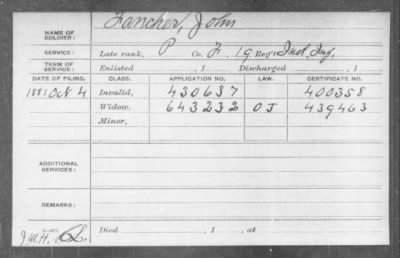 Fancher, John
NAME OF SOLDIER:
SERVICE: Late rank, P Co. F, 19 Reg't Ind. Inf.
TERM OF SERVICE: Enlisted , 1 Discharged , 1
DATE OF FILING. CLASS. APPLICATION NO. LAW. CERTIFICATE NO.
1881 Oct 4 Invalid, 430637 400358
Widow, 643232 O J 439463
Minor,
ADDITIONAL SERVICES:
REMARKS:
J.W.H.
Died , 1 , at